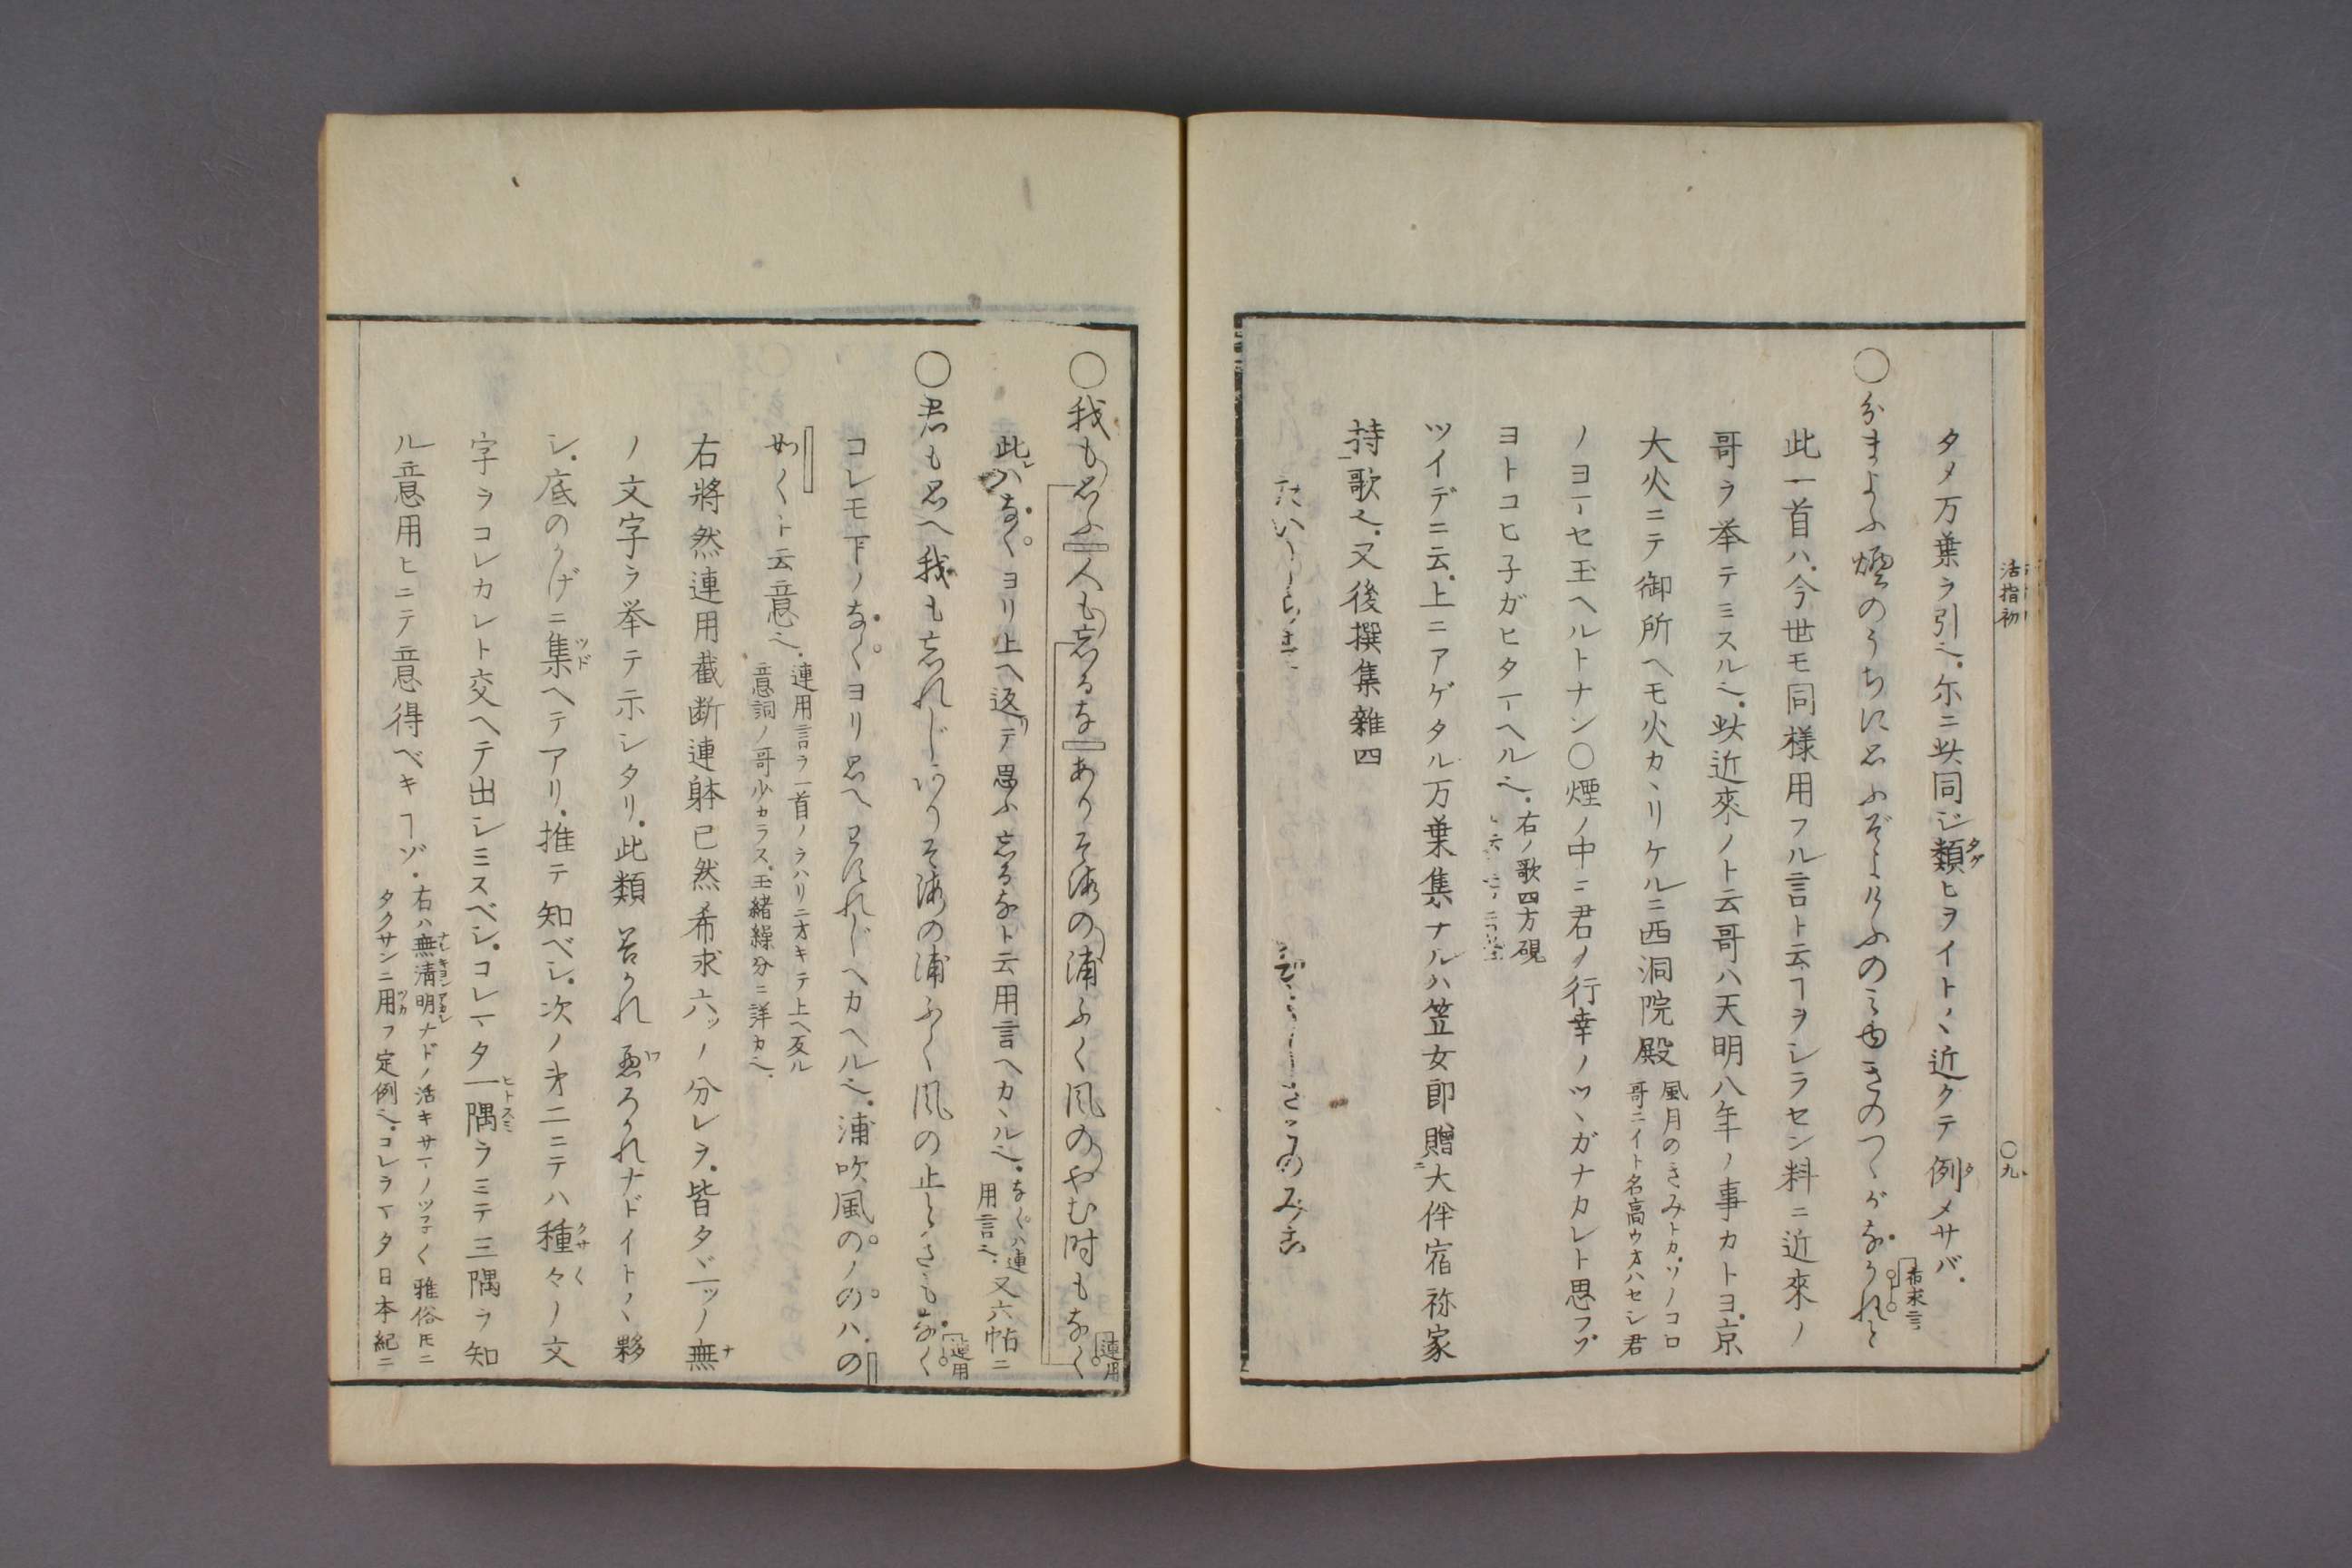 活指初
〇九
タメ万葉ヲ引ヘ尓ニ此同ジ類ヒヲイトヽ近クテ例メサバ
タグ
タ
希求言
〇
まよふ煙のうちに思ふぞよけふのみゆきのつゝがなかれと
此一首ハ今世モ同様用フル言ト云ヿヲシラセン料ニ近來ノ
哥ヲ挙テミスルヘ此近來ノト云哥ハ天明八年ノ事カトヨ京
大火ニテ御所ヘモ火カヽリケルニ西洞院殿
風月のきみトカソノコロ
哥ニイト名高ウオハセシ君
ノヨマセ玉ヘルトナン〇煙ノ中ニ君ノ行幸ノツヽガナカレト思フゾ
ヨトコヒ子ガヒタマヘルヘ
右ノ歌四方硯
ツイデニ云上ニアゲタル万葉集ナルハ笠女郎贈大伴宿祢家
持歌ヘ又後撰集雑四
〇我も思ふ人も忘るなありそ海の浦ふく風のやむ時もなく
連用
此ハなくヨリ上ヘ返テ思ふ忘るなト云用言ヘカヽルヘ
なくハ連
用言ヘ
又六帖ニ
〇君も思へ我も忘れじありそ海の浦ふく風の止ときもなく
連用
コレモ下ノなくヨリ思へわすれじヘカヘルヘ浦吹風のノのハの
如くト云意ヘ
連用言ヲ一首ノヲハリニオキテ上ヘ反ル
意詞ノ哥少カラス玉緒繰分ニ洋カヘ
右將然連用截断連躰已然希求六ッノ分レヲ皆タヾ一ッノ無
ナ
ノ文字ヲ挙テ示シタリ此類 苦かれ 悪ろかれナドイトヽ夥
ワ
シ底のかげニ集ヘテアリ推テ知ベシ次ノ才二ニテハ種々ノ文
ツド
クサ〱
字ヲコレカレト交ヘテ出シミスベシコレマタ一隅ヲミテ三隅ヲ知
ヒトスミ
ル意用ヒニテ意得ベキヿゾ
右ハ無清明ナドノ活キサマノツ子〱雅俗氏ニ
タクサンニ用フ定例ヘコレラマタ日本紀ニ
ツカ